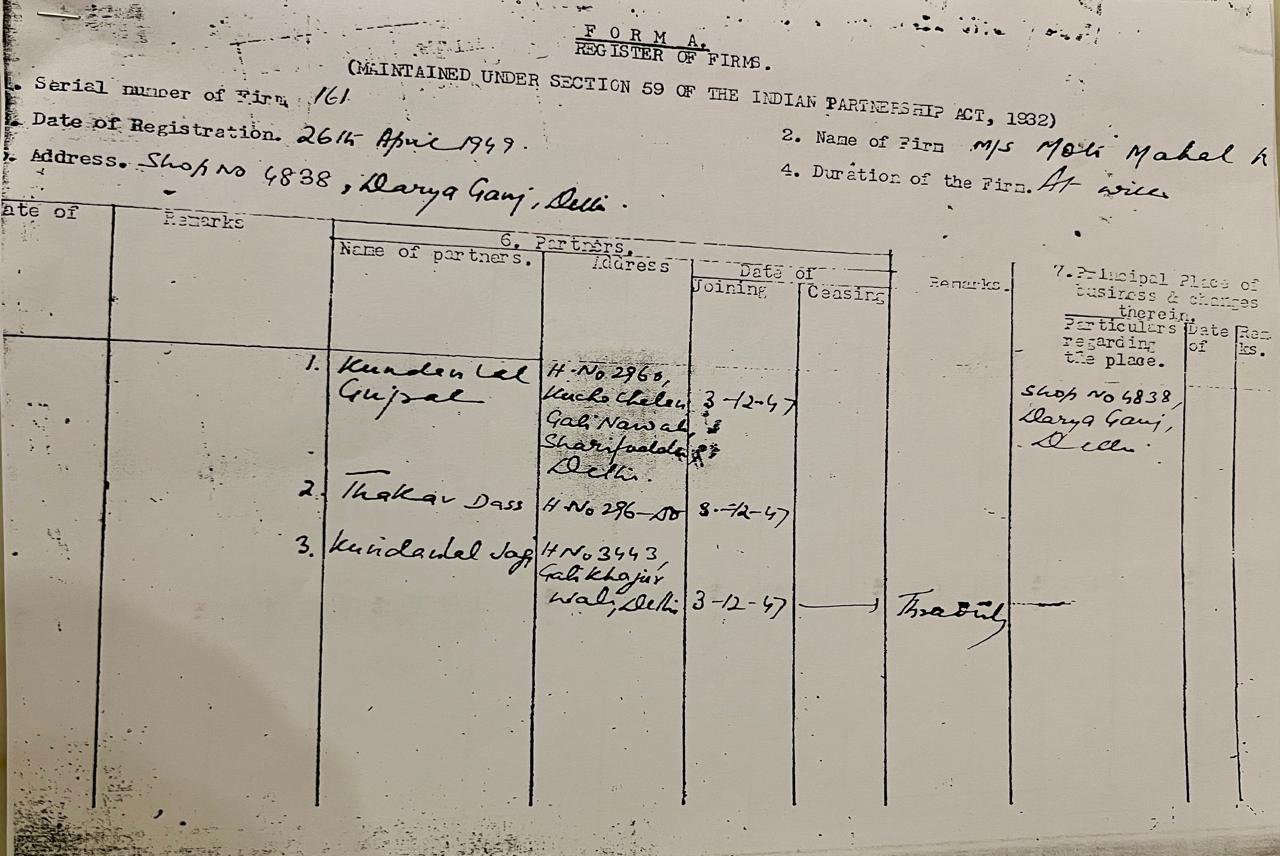 FORM A.
REGISTER OF FIRMS.
(MAINTAINED UNDER SECTION 59 OF THE INDIAN PARTNERSHIP ACT, 1932)
. Serial number of Firm 161
2. Name of Firm M/s Moti Mahal
. Date of Registration. 26th April 1949.
4. Duration of the Firm. At will
. Address. Shop No 4838, Darya Ganj, Delhi.
ate of
Remarks
6. Partners.
Name of partners.
Address
Date of
Joining
Ceasing
Remarks.
7. Principal Place of
business & changes
therein.
Particulars
regarding
the place.
Date
of
Rem-
ks.
1. Kundan Lal
Gujral
H. No 2960,
Kucha Chelan
Gali Nawab,
Delhi.
3-12-47
Shop No 4838,
Darya Ganj,
Delhi.
2. Thakar Dass
H. No 296
3-12-47
3. Kundanlal Jagi
H No 3443,
Gali Khajur
Wali, Delhi
3-12-47